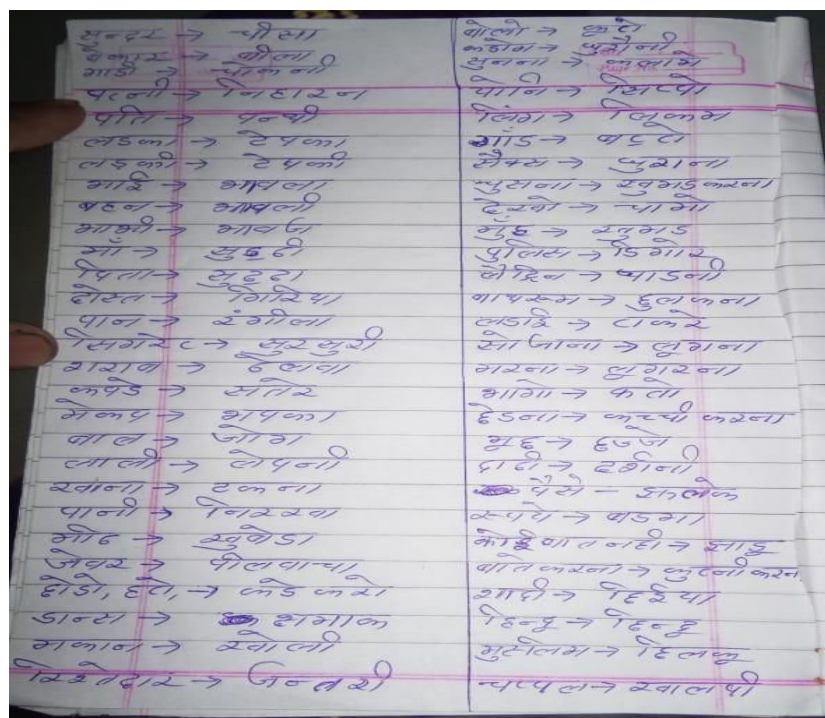 सुन्दर → चीसा
बेकार → बीला
गाडी → चोकनी
पत्नी → निहारन
पति → पन्थी
लडका → टेपका
लडकी → टेपकी
भाई → भावला
बहन → भावली
भाभी → भावज
माँ → सुड्डी
पिता → सुड्डा
दोस्त → गिरिया
पान → रंगीला
सिगरेट → सुरसुरी
शराब → ढेलवा
कपडे → सातेर
मेकप → मपका
बाल → जोग
लाली → लेपनी
खाना → टकना
पानी → निरखा
मीट → खुवोडा
जेवर → पीलवाचा
छोडो, हटो, → कडे करो
डान्स → थमाक
मकान → खोली
रिश्तेदार → जन्तरी
बोलो →
कडोम →
सुनना →
योनि → सिप्पो
लिंग → लिकम
गाँड → बट्टो
सैक्स → धुराना
चुसना → खुमडकरना
देखो → चामो
मुँह → खुमड
पुलिस → डिगोर
लैट्रिन → चाडनी
बाथरूम → ढुलकना
लडाई → टाकरे
सो जाना → लुगना
मरना → लुगरना
भागो → फतो
छेडना → कच्ची करना
मूछ → छज्जे
दाढी → दर्शनी
पैसे – झलके
रूपये → बडमा
कोई बात नही → झाडू
बात करना → कुटनी करना
शादी → हिरिया
हिन्दु → हिन्दु
मुस्लिम → हिलकू
चप्पल → खालपी